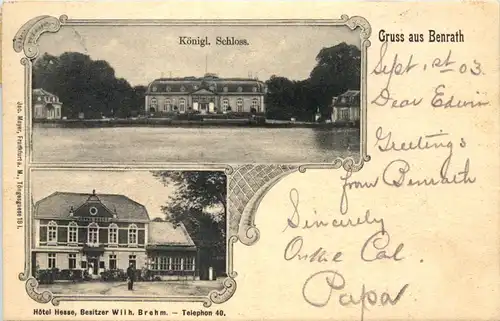 Gruss aus Benrath
Königl. Schloss.
Sept. 1st 03.
Dear Edwin
Greetings
from Benrath
Sincerly
Cal.
Papa
Hôtel Hesse, Besitzer Wilh. Brehm. — Telephon 40.
Jos. Mayer, Frankfurt a. M.,